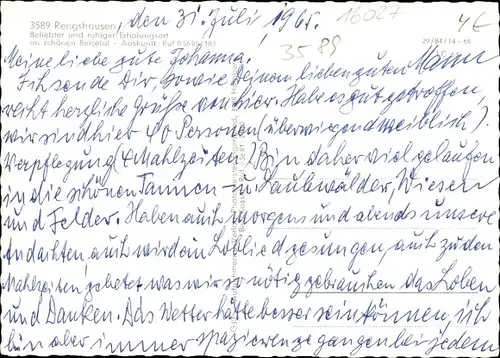 3589 Rengshausen, den 31. Juli, 1967. 16027
Beliebter und ruhiger Erholungsort 4€
im schönen Beisetal - Auskunft: Ruf 05686/385 3589 29/84/14 - 66
Meine liebe gute Johanna.
Ich sende Dir, sowie Deinen lieben guten Mann
recht herzliche Grüße von hier. Habe es gut getroffen,
wir sind hier 40 Personen (überwiegend weiblich).
Verpflegung (4 Mahlzeiten) Bin daher viel gelaufen
in die schönen Tannen- u. Laubwälder, Wiesen
und Felder. Haben auch morgens und abends unsere
Andachten auch wird ein Loblied gesungen, auch zu den
Mahlzeiten gebetet was wir so nötig gebrauchen das Loben
und Danken. Das Wetter hätte besser sein können, ich
bin aber immer spazieren gegangen bei jedem